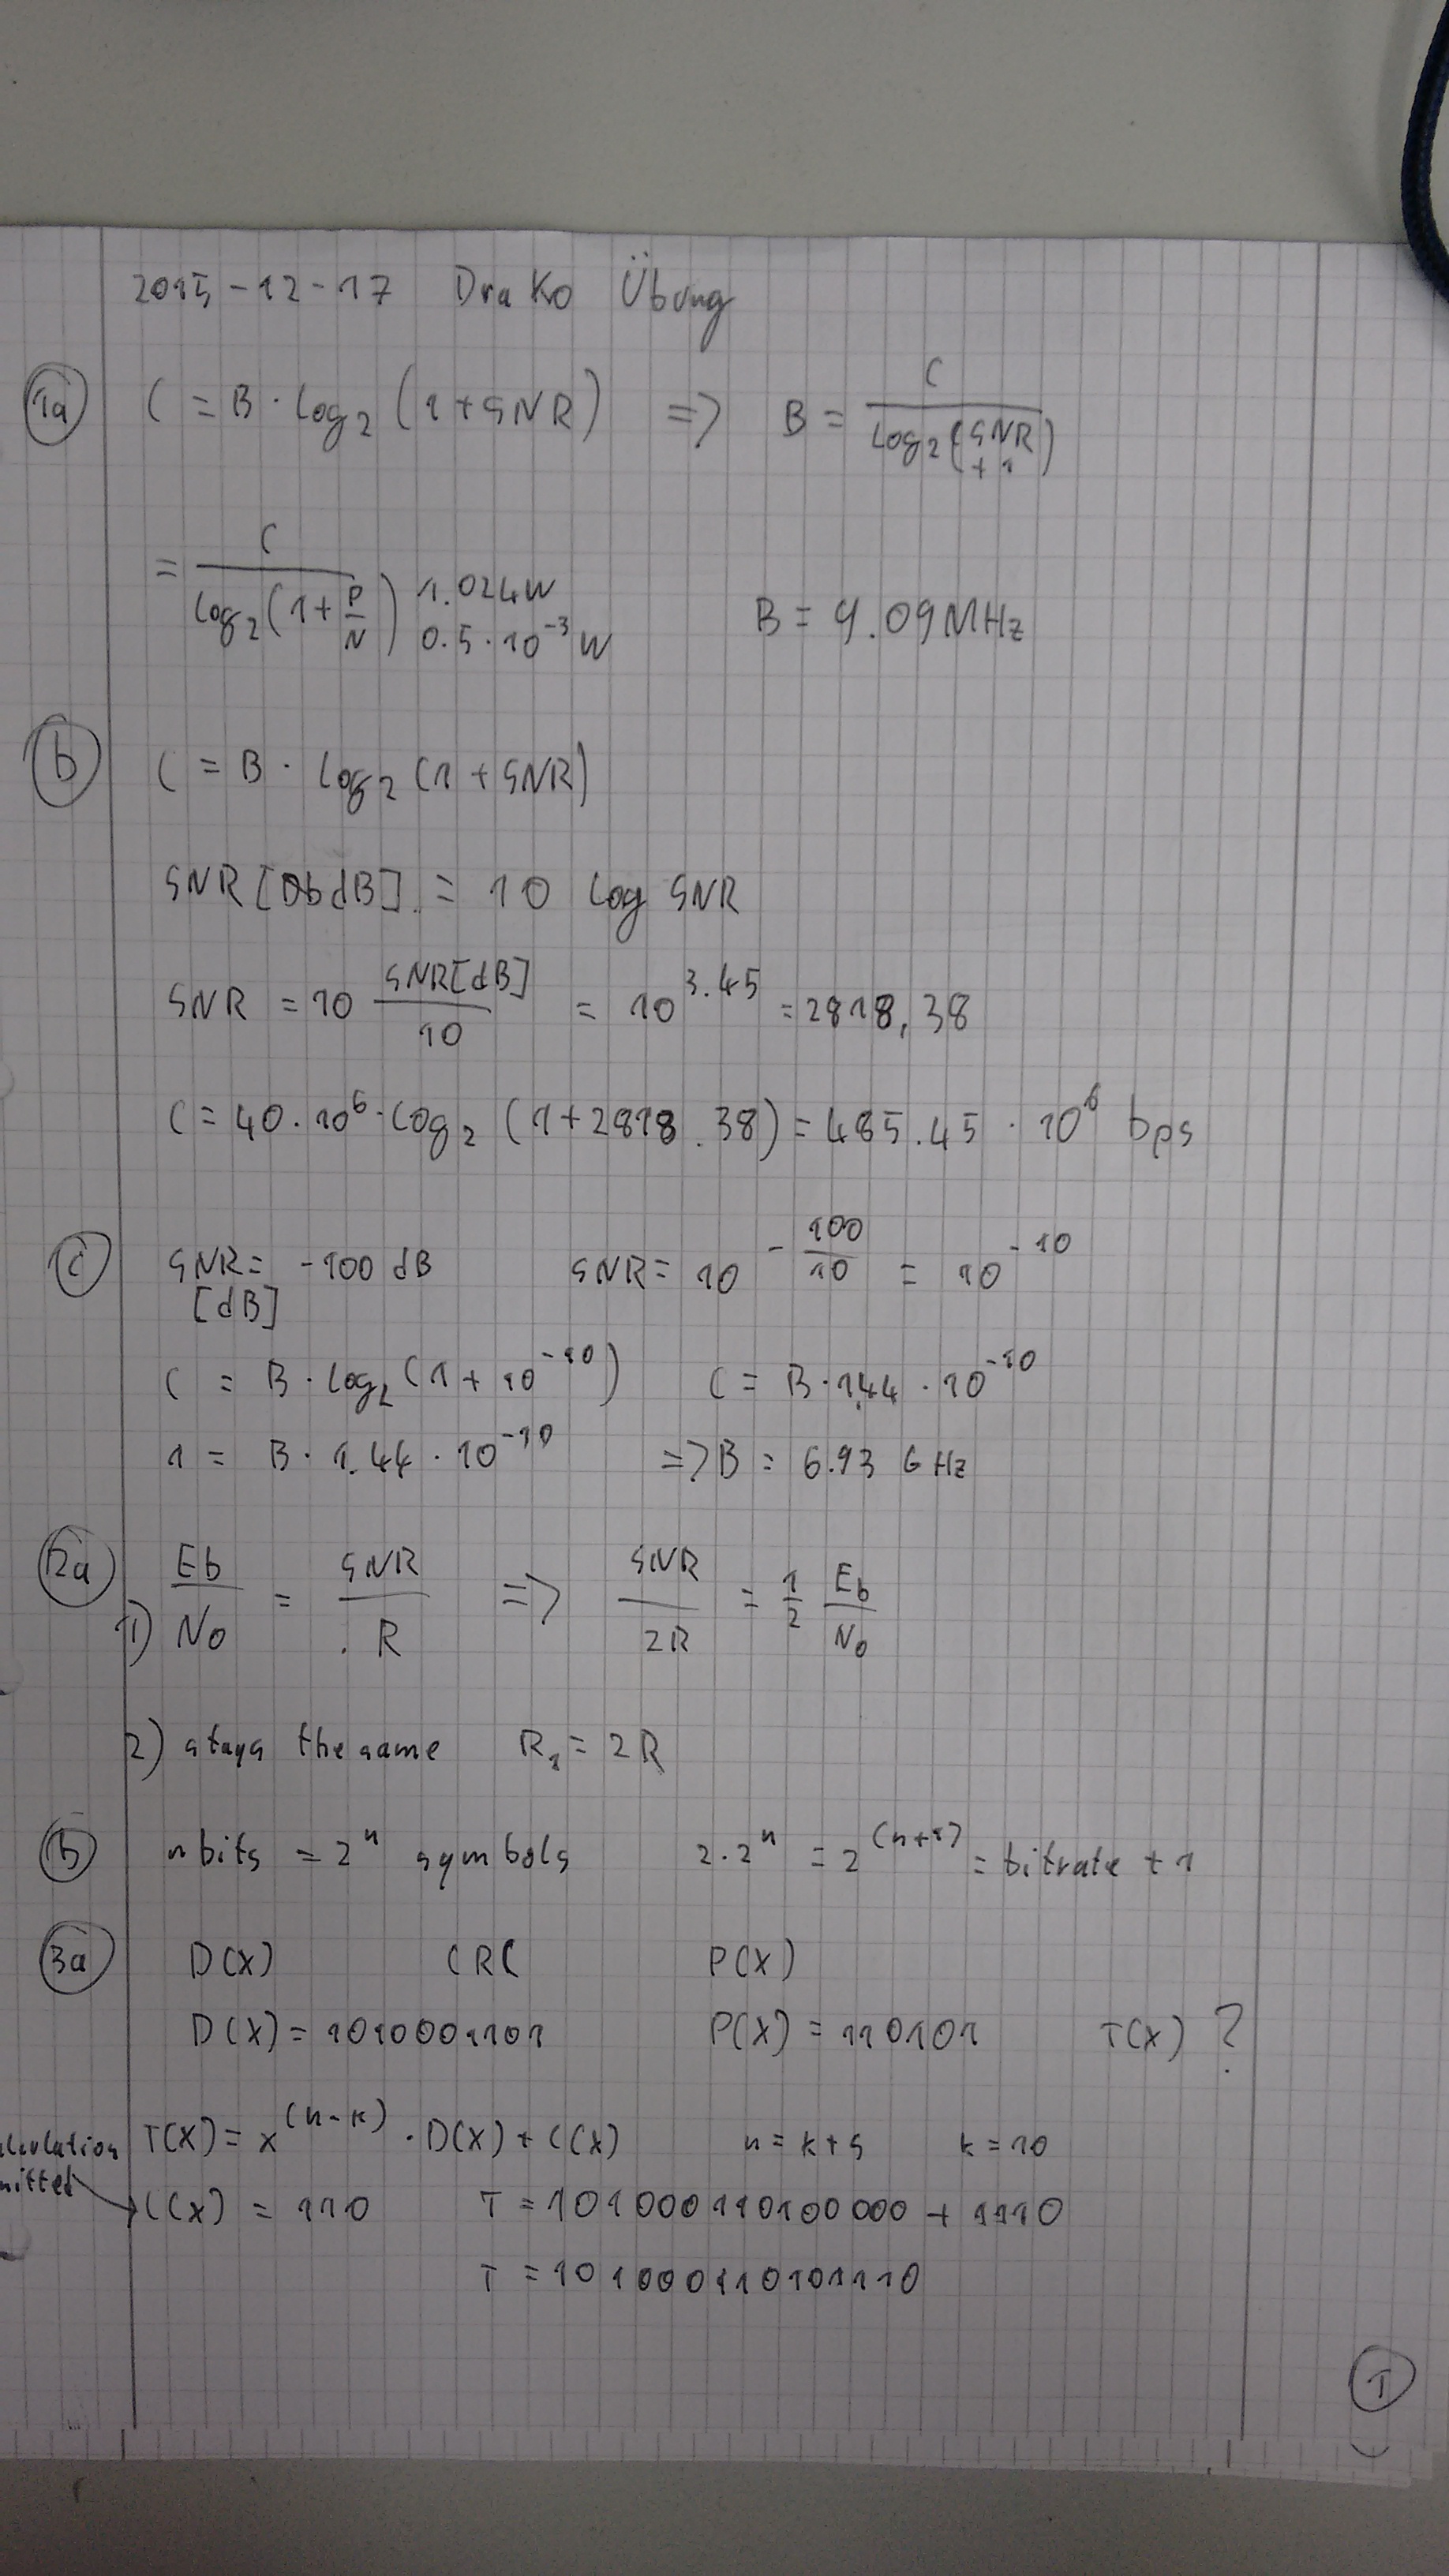 2015-12-17 DraKo Übung
1a C = B · log₂ (1 + SNR) => B = C / log₂(SNR + 1)
= C / log₂(1 + P/N) 1.024W 0.5·10⁻³W B = 9.09MHz
b C = B · log₂ (1 + SNR)
SNR [dB] = 10 log SNR
SNR = 10 SNR[dB]/10 = 10^3.45 = 2818,38
C = 40·10⁶·log₂ (1+2818.38) = 485.45 · 10⁶ bps
1c SNR [dB] = -100 dB SNR = 10^(-100/10) = 10⁻¹⁰
C = B · log₂ (1 + 10⁻¹⁰) C = B · 1.44 · 10⁻¹⁰
1 = B · 1.44 · 10⁻¹⁰ => B = 6.93 GHz
2a 1) Eb/N0 = SNR/R => SNR/2R = 1/2 Eb/N0
2) stays the same R₁ = 2R
b n bits = 2ⁿ symbols 2·2ⁿ = 2⁽ⁿ⁺¹⁾ = bitrate + 1
3a D(X) CRC P(X)
D(X) = 1010001101 P(X) = 110101 T(X) ?
T(X) = x^(n-k) · D(X) + C(X) n = k+5 k = 10
C(X) = 110 T = 101000110100000 + 1110
T = 101000110101110
1